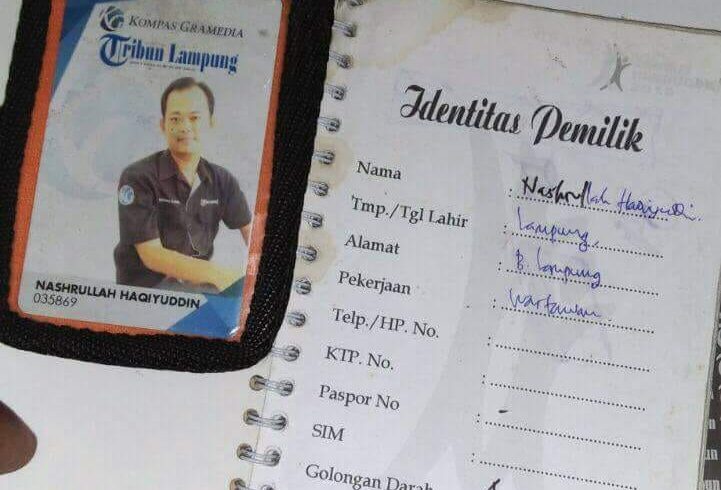 KOMPAS GRAMEDIA
Tribun Lampung
NASHRULLAH HAQIYUDDIN
035869
Identitas Pemilik
Nama : Nashrullah Haqiyuddin.
Tmp./Tgl Lahir : Lampung,
Alamat : B. Lampung
Pekerjaan : Wartawan
Telp./HP. No. :
KTP. No. :
Paspor No :
SIM : -
Golongan Darah